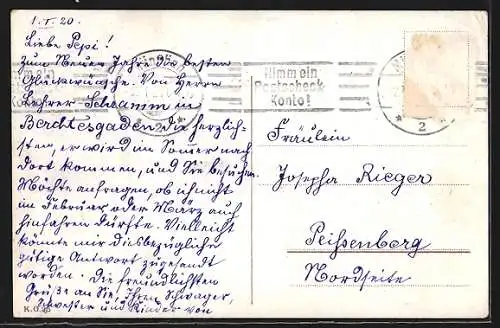 1. I. 20.
Liebe Pepi!
Zum Neuen Jahre die besten
Glückwünsche. Von Herrn
Lehrer Schramm in
Berchtesgaden die herzlich-
sten, er wird im Sommer nach
dort kommen, und Sie besuchen.
Möchte anfragen, ob ich nicht
im Februar oder März auch
hinfahren dürfte. Vielleicht
könnte mir diesbezügliche
gütige Antwort zugesandt
werden. Die freundlichsten
Grüße an Sie, Ihren Schwager,
Schwester und Kinder von
K.O.
Nimm ein
Postscheck-
Konto!
* 2 *
2
Fräulein
Josepha Rieger
Peissenberg
Nordseite